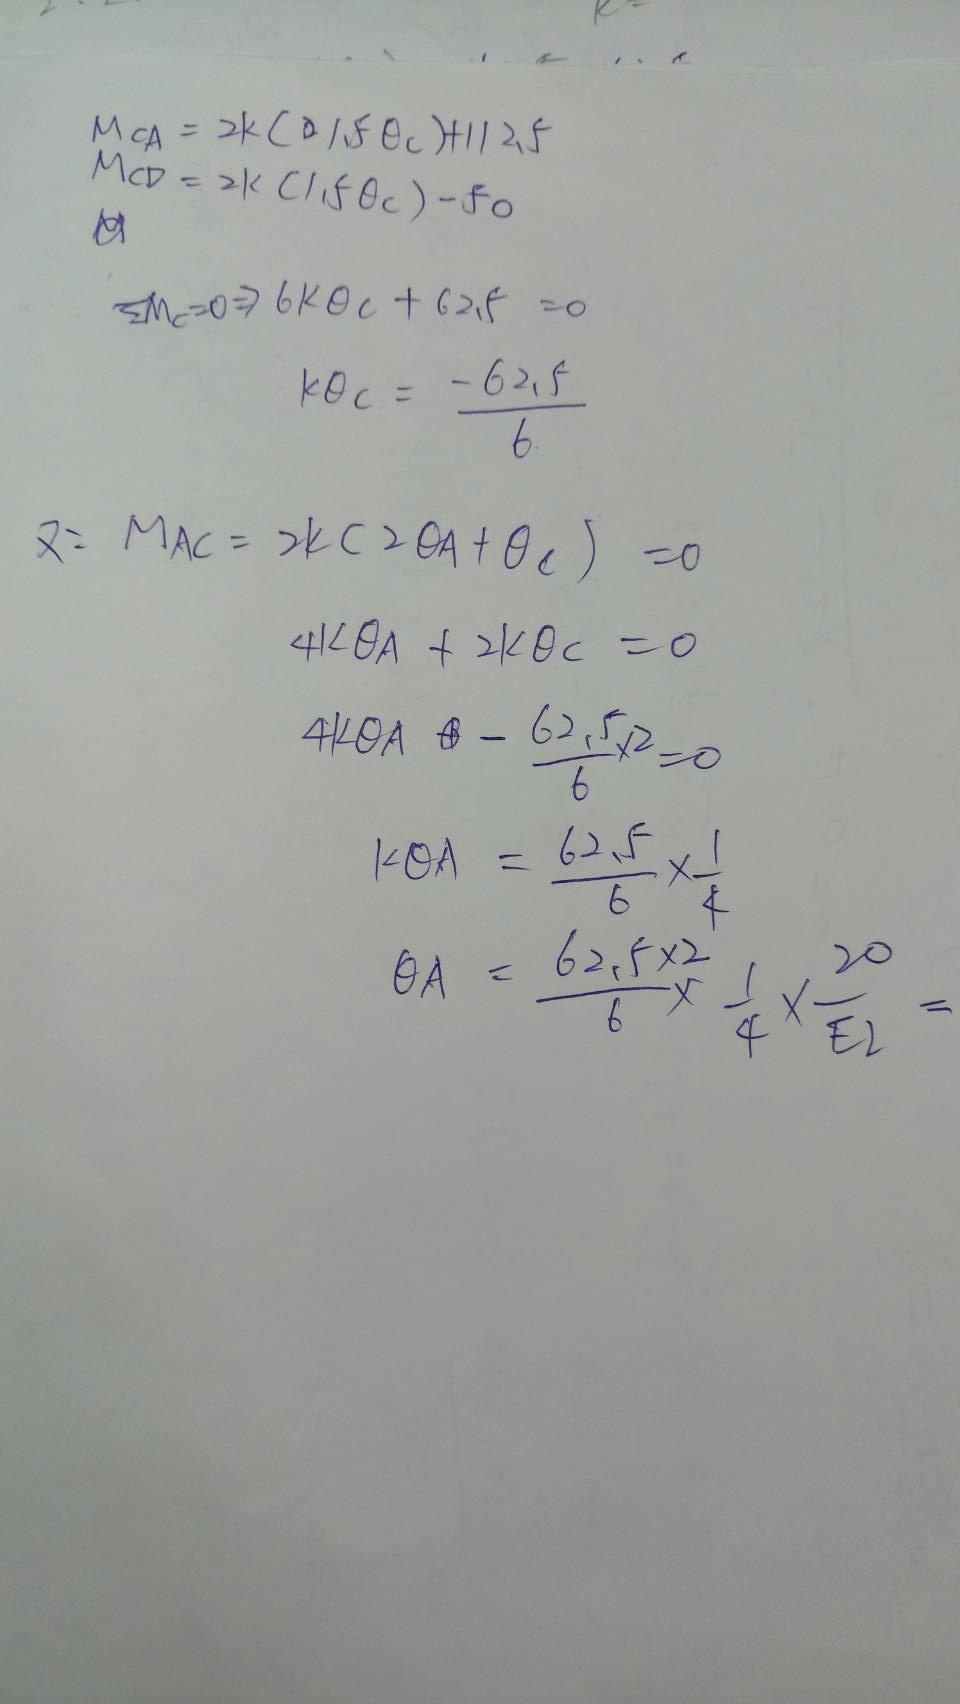 M_CA = 2k(1.5θ_C)+112.5
M_CD = 2k(1.5θ_C)-50
ΣM_C=0⇒6kθ_C + 62.5 =0
kθ_C = -62.5/6
又= M_AC = 2k(2θ_A+θ_C) =0
4kθ_A + 2kθ_C =0
4kθ_A - 62.5/6 ×2=0
kθ_A = 62.5/6 × 1/4
θ_A = 62.5×2/6 × 1/4 × 20/EI =